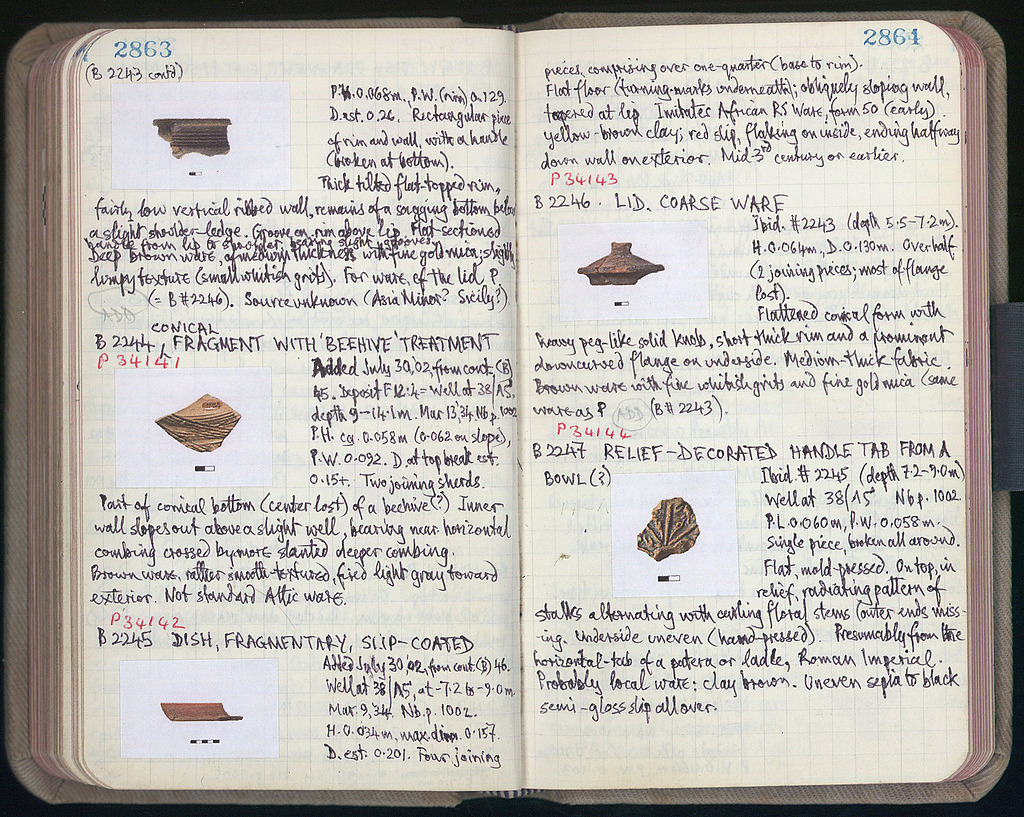 2863
(B 2243 contd)
P.H. 0.068m., P.W. (rim) 0.129.
D. est. 0.26. Rectangular piece
of rim and wall, with a handle
(broken at bottom).
Thick tilted flat-topped rim,
fairly low vertical ribbed wall, remains of a sagging bottom below
a slight shoulder-ledge. Groove on rim above lip. Flat-sectioned
handle from lip to shoulder, bearing slight grooves.
Deep brown ware, of medium thickness with fine gold mica; slightly
lumpy texture (small whitish grits). For ware, cf. the lid, P
(= B #2246). Source unknown (Asia Minor? Sicily?)
CONICAL
B 2244, FRAGMENT WITH 'BEEHIVE' TREATMENT
P 34141
Added July 30, 02, from cont. (B)
45. Deposit F 12:4 = Well at 38/ΛΣ,
depth 9-14.1m. Mar 13, 34 Nb p. 1002
P.H. ca. 0.058m (0.062 on slope),
P.W. 0.092. D. at top break est.
0.15+. Two joining sherds.
Part of conical bottom (center lost) of a beehive(?) Inner
wall slopes out above a slight well, bearing near horizontal
combing crossed by more slanted deeper combing.
Brown ware, rather smooth-textured, fired light gray toward
exterior. Not standard Attic ware.
P 34142
B 2245 DISH, FRAGMENTARY, SLIP-COATED
Added July 30, 02, from cont. (B) 46.
Well at 38/ΛΣ, at -7.2 to -9.0m
Mar. 9, 34. Nb. p. 1002.
H. 0.034m, max. dim. 0.157.
D. est. 0.201. Four joining
2864
pieces, comprising over one-quarter (base to rim).
Flat floor (turning-marks underneath); obliquely sloping wall,
tapered at lip Imitates African RS Ware, form 50 (early)
yellow-brown clay; red slip, flaking on inside, ending halfway
down wall on exterior. Mid-3rd century or earlier.
P 34143
B 2246. LID, COARSE WARE
Ibid. #2243 (depth 5.5-7.2m).
H. 0.064m, D. 0.130m. Over half
(2 joining pieces; most of flange
lost).
Flattened conical form with
heavy peg-like solid knob, short thick rim and a prominent
downcurved flange on underside. Medium-thick fabric.
Brown ware with fine whitish grits and fine gold mica (same
ware as P (B # 2243).
P 34144
B 2247 RELIEF-DECORATED HANDLE TAB FROM A
BOWL (?)
Ibid. # 2245 (depth 7.2-9.0m)
Well at 38/ΛΣ Nb p. 1002.
P.L. 0.060m, P.W. 0.058m.
Single piece, broken all around.
Flat, mold-pressed. On top, in
relief, radiating pattern of
stalks alternating with curling floral stems (outer ends miss-
ing. Underside uneven (hand-pressed). Presumably from the
horizontal-tab of a patera or ladle, Roman Imperial.
Probably local ware: clay brown. Uneven sepia to black
semi-gloss slip all over.